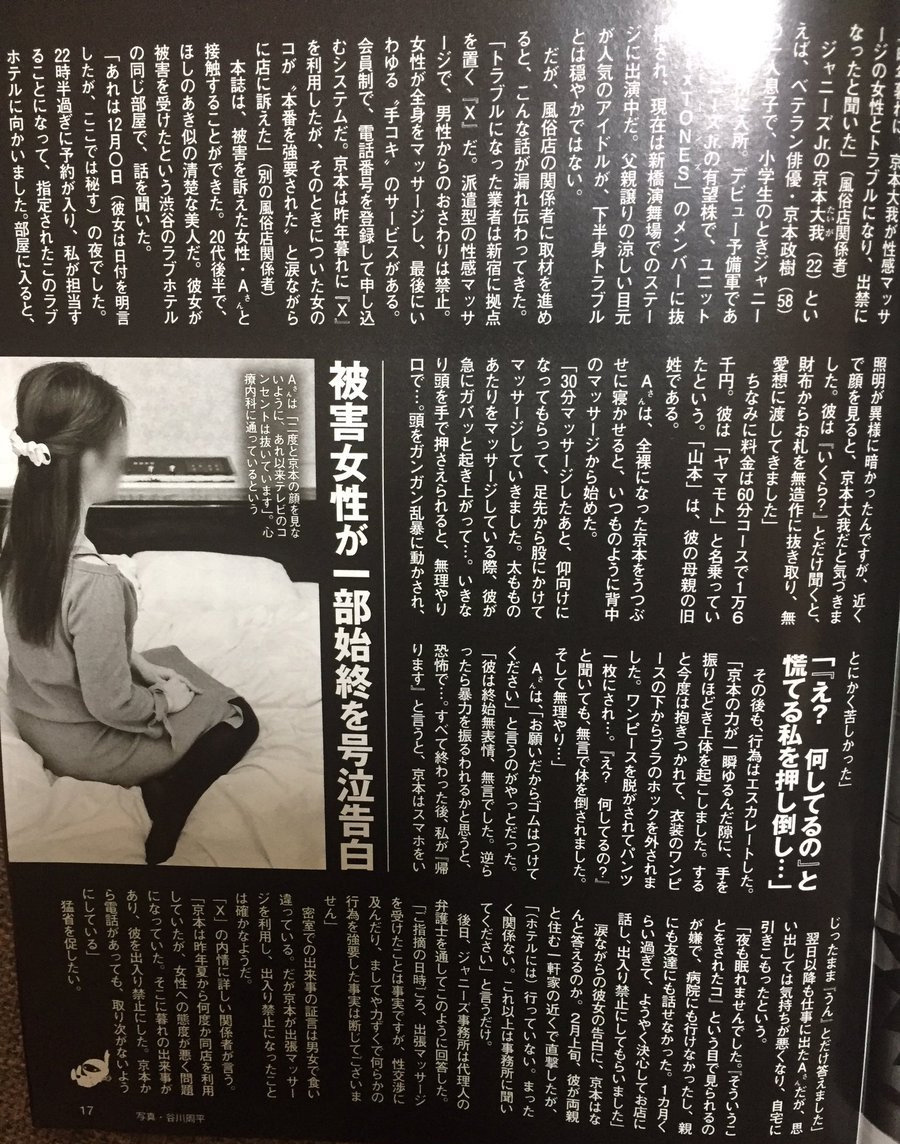 京本大我が性感マッサ
ージの女性とトラブルになり、出禁に
なったと聞いた」（風俗店関係者）
ジャニーズJr.の京本大我（22）とい
えば、ベテラン俳優・京本政樹（58）
一人息子で、小学生のときジャニー
に入所。デビュー予備軍であ
Jr.の有望株で、ユニット
TONES」のメンバーに抜
され、現在は新橋演舞場でのステー
ジに出演中だ。父親譲りの涼しい目元
が人気のアイドルが、下半身トラブル
とは穏やかではない。
だが、風俗店の関係者に取材を進め
ると、こんな話が漏れ伝わってきた。
「トラブルになった業者は新宿に拠点
を置く『X』だ。派遣型の性感マッサ
ージで、男性からのおさわりは禁止。
女性が全身をマッサージし、最後にい
わゆる〝手コキ〟のサービスがある。
会員制で、電話番号を登録して申し込
むシステムだ。京本は昨年暮れに『X』
を利用したが、そのときについた女の
コが〝本番を強要された〟と涙ながら
に店に訴えた」（別の風俗店関係者）
本誌は、被害を訴えた女性・Aさんと
接触することができた。20代後半で、
ほしのあき似の清楚な美人だ。彼女が
被害を受けたという渋谷のラブホテル
の同じ部屋で、話を聞いた。
「あれは12月〇日（彼女は日付を明言
したが、ここでは秘す）の夜でした。
22時半過ぎに予約が入り、私が担当す
ることになって、指定されたこのラブ
ホテルに向かいました。部屋に入ると、
照明が異様に暗かったんですが、近く
で顔を見ると、京本大我だと気づきま
した。彼は『いくら？』とだけ聞くと、
財布からお札を無造作に抜き取り、無
愛想に渡してきました」
ちなみに料金は60分コースで1万6
千円。彼は「ヤマモト」と名乗ってい
たという。「山本」は、彼の母親の旧
姓である。
Aさんは、全裸になった京本をうつぶ
せに寝かせると、いつものように背中
のマッサージから始めた。
「30分マッサージしたあと、仰向けに
なってもらって、足先から股にかけて
マッサージしていきました。太ももの
あたりをマッサージしている際、彼が
急にガバッと起き上がって…。いきな
り頭を手で押さえられると、無理やり
口で…。頭をガンガン乱暴に動かされ、
とにかく苦しかった」
「『え？　何してるの』と
慌てる私を押し倒し…」
その後も、行為はエスカレートした。
「京本の力が一瞬ゆるんだ隙に、手を
振りほどき上体を起こしました。する
と今度は抱きつかれて、衣装のワンピ
ースの下からブラのホックを外されま
した。ワンピースを脱がされてパンツ
一枚にされ…。『え？　何してるの？』
と聞いても、無言で体を倒されました。
そして無理やり…」
Aさんは「お願いだからゴムはつけて
ください」と言うのがやっとだった。
「彼は終始無表情、無言でした。逆ら
ったら暴力を振るわれるかと思うと、
恐怖で…。すべて終わった後、私が『帰
ります』と言うと、京本はスマホをい
じったまま『うん』とだけ答えました」
翌日以降も仕事に出たAさんだが、思
い出しては気持ちが悪くなり、自宅に
引きこもったという。
「夜も眠れませんでした。『そういうこ
とをされたコ』という目で見られるの
が嫌で、病院にも行けなかったし、親
にも友達にも話せなかった。1カ月く
らい過ぎて、ようやく決心してお店に
話し、出入り禁止にしてもらいました」
涙ながらの彼女の告白に、京本はな
んと答えるのか。2月上旬、彼が両親
と住む一軒家の近くで直撃したが、
「（ホテルには）行っていない。まった
く関係ない。これ以上は事務所に聞い
てください」と言うだけ。
後日、ジャニーズ事務所は代理人の
弁護士を通してこのように回答した。
「ご指摘の日時ころ、出張マッサージ
を受けたことは事実ですが、性交渉に
及んだり、ましてや力ずくで何らかの
行為を強要した事実は断じてございま
せん」
密室での出来事の証言は男女で食い
違っている。だが京本が出張マッサー
ジを利用し、出入り禁止になったこと
は確かなようだ。
「X」の内情に詳しい関係者が言う。
「京本は昨年夏から何度か同店を利用
していたが、女性への態度が悪く問題
になっていた。そこに暮れの出来事が
あり、彼を出入り禁止にした。京本か
ら電話があっても、取り次がないよう
にしている」
猛省を促したい。
被害女性が一部始終を号泣告白
Aさんは「二度と京本の顔を見な
いように、あれ以来テレビのコ
ンセントは抜いています」。心
療内科に通っているという
写真・谷川周平
17